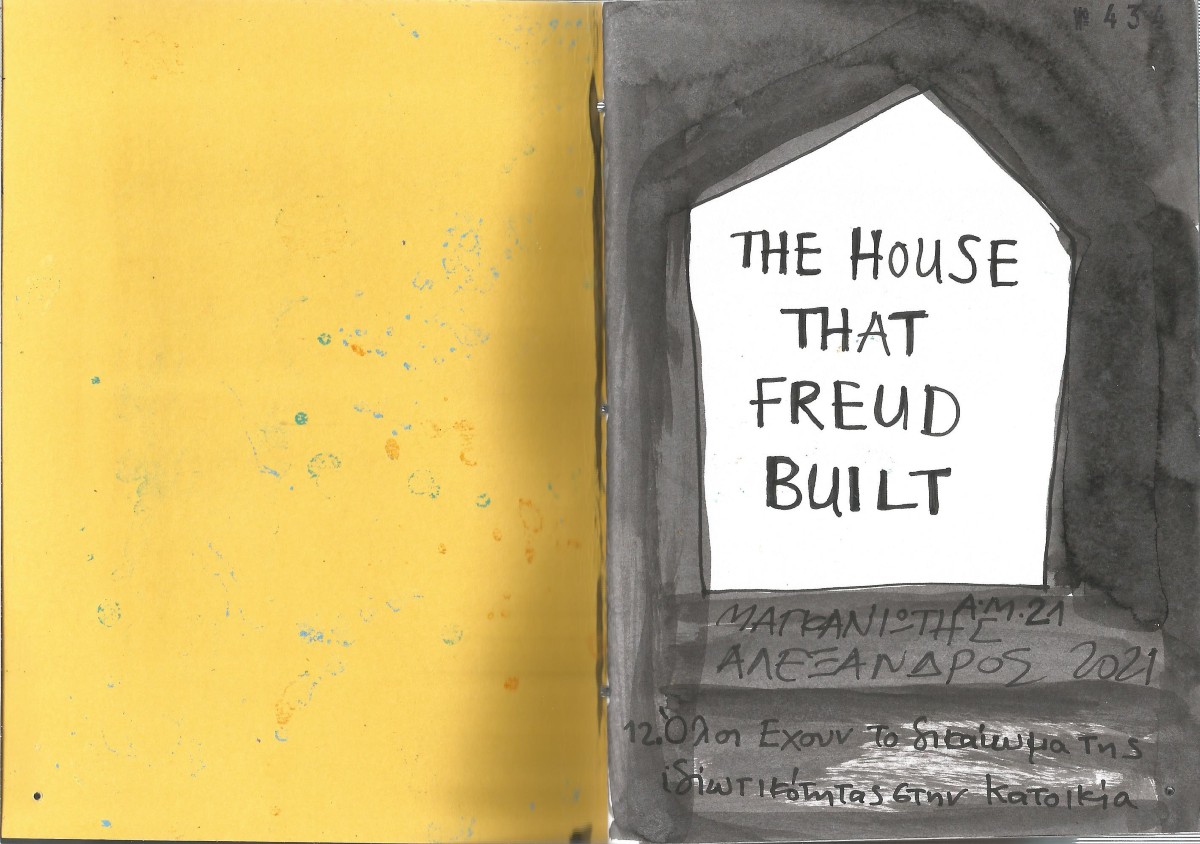 № 434
THE HOUSE
THAT
FREUD
BUILT
Α.Μ.21
ΜΑΓΚΑΝΙΩΤΗΣ
ΑΛΕΞΑΝΔΡΟΣ 2021
12. Όλοι Εχουν το δικαίωμα της
ιδιωτικότητας στην κατοικία